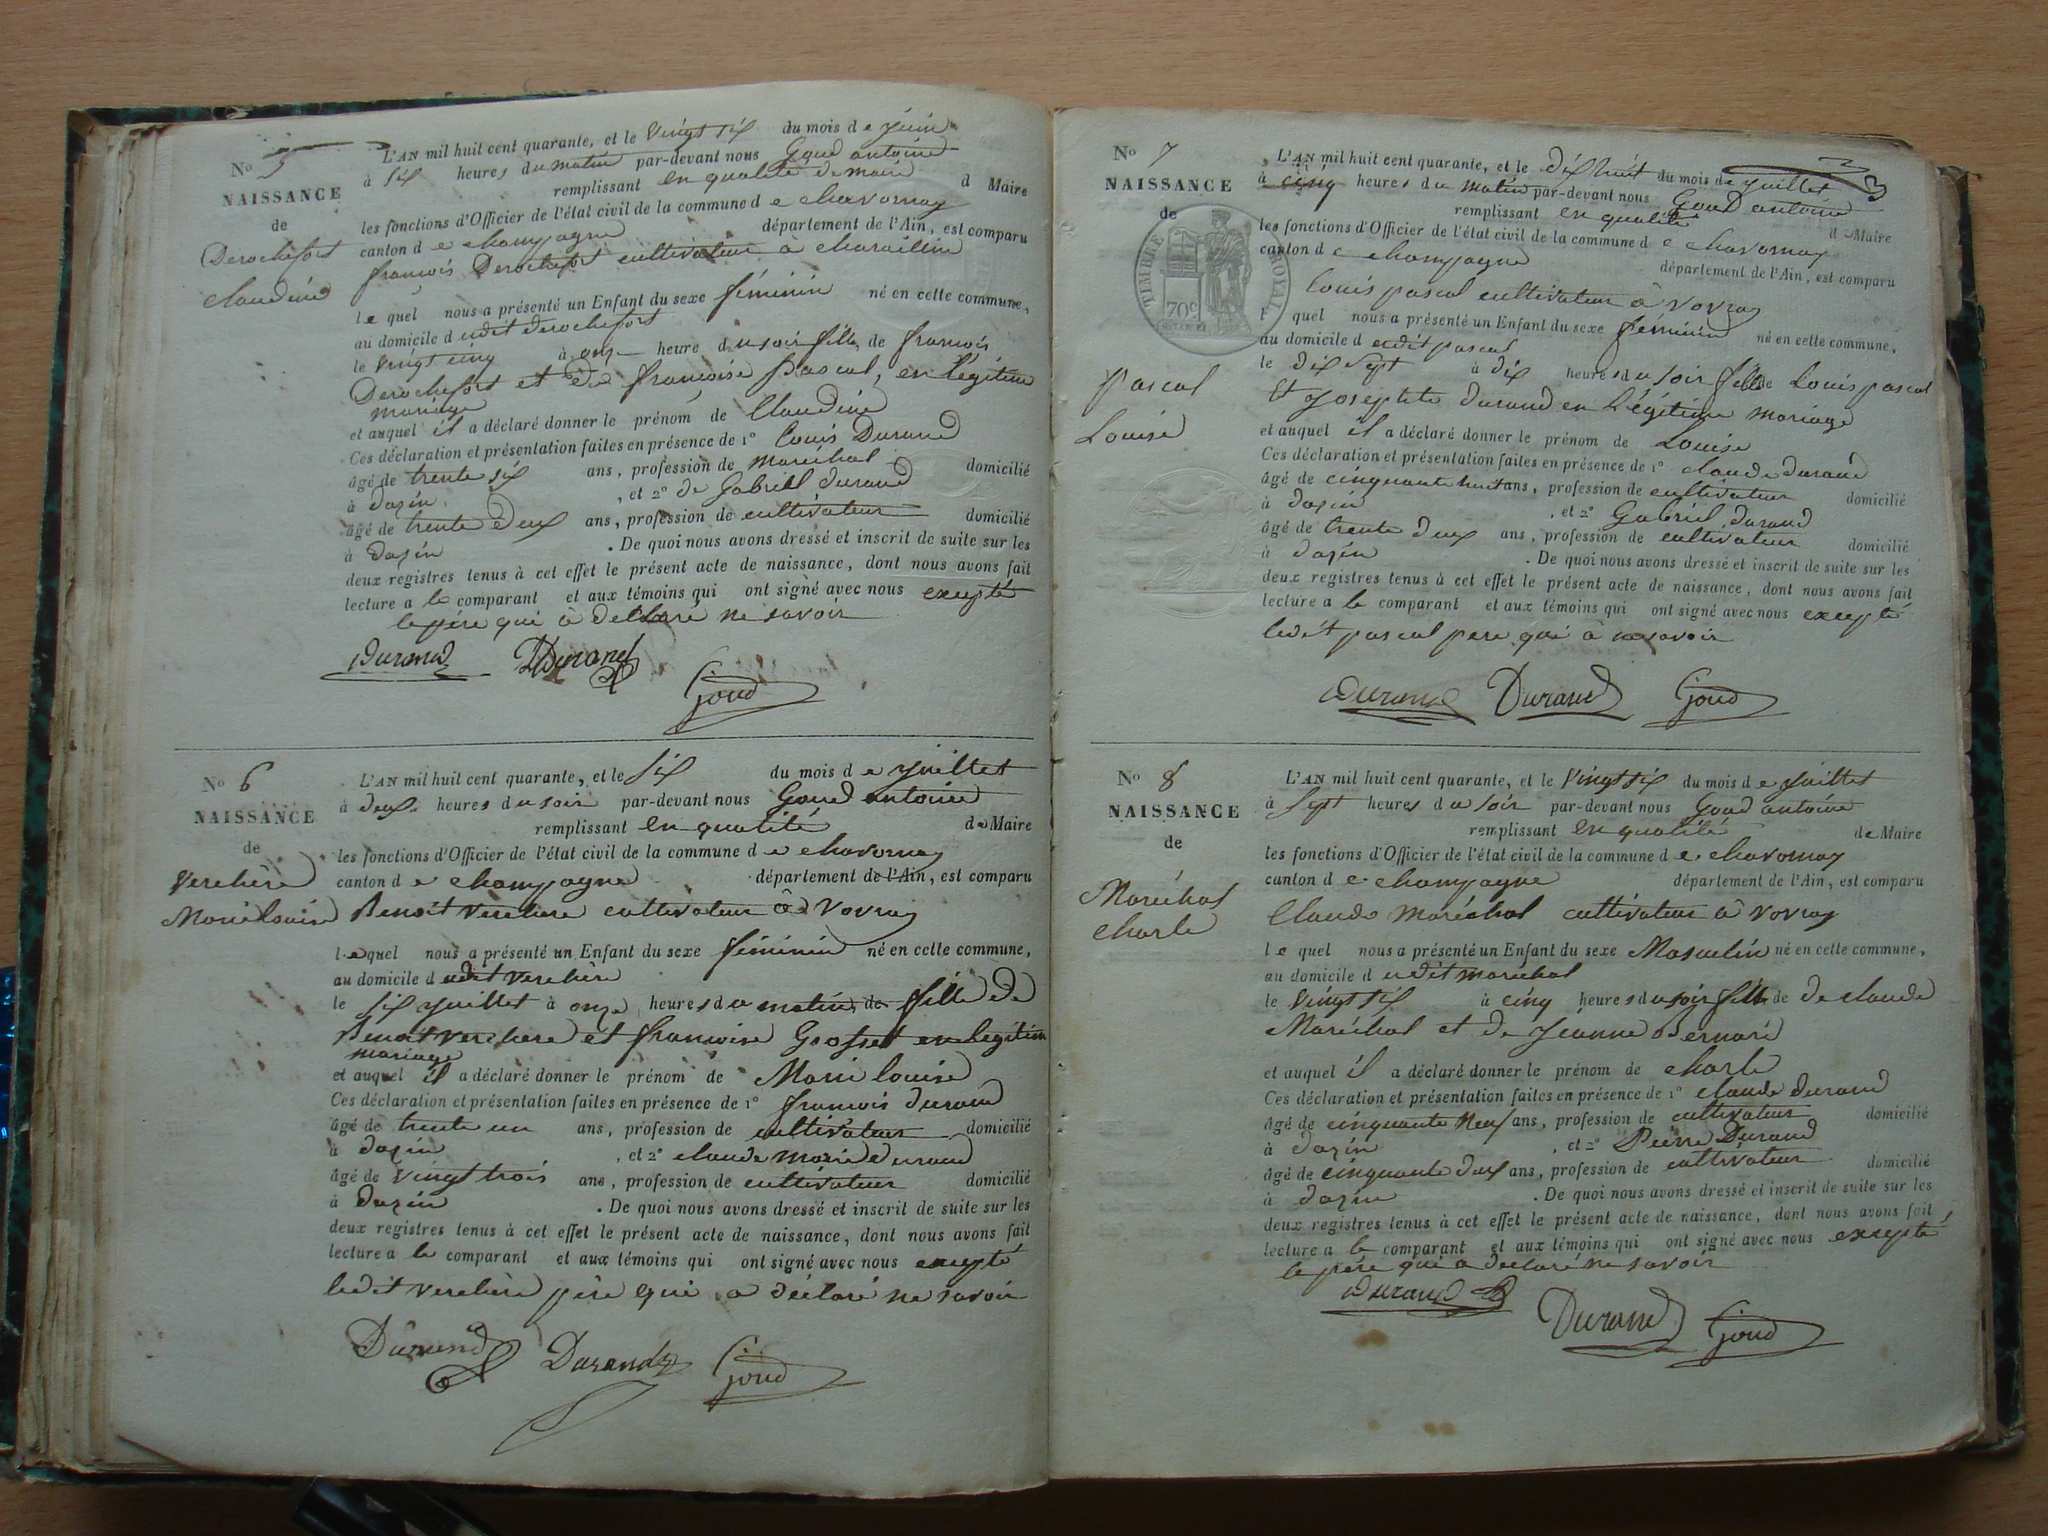 No 5
NAISSANCE
de
Derochefort
claudine
L'AN mil huit cent quarante, et le vingt six du mois de juin
à six heures du matin par-devant nous Goud antoine
remplissant en qualité de maire d Maire
les fonctions d'Officier de l'état civil de la commune de chavornay
canton de champagne département de l'Ain, est comparu
françois Derochefort cultivateur à charaillin
lequel nous a présenté un Enfant du sexe féminin né en cette commune,
au domicile dudit derochefort
le vingt cinq à onze heure du soir fille de francois
Derochefort et de françoise pascal, en légitime
mariage
et auquel il a déclaré donner le prénom de Claudine
Ces déclaration et présentation faites en présence de 1º Louis Durand
âgé de trente six ans, profession de maréchal domicilié
à dazin, et 2º de Gabriel durand
âgé de trente deux ans, profession de cultivateur domicilié
à dazin . De quoi nous avons dressé et inscrit de suite sur les
deux registres tenus à cet effet le présent acte de naissance, dont nous avons fait
lecture a le comparant et aux témoins qui ont signé avec nous excepté
le père qui à déclaré ne savoir
Durand LDurand
Goud
No 6
NAISSANCE
de
Verchère
Marie louise
L'AN mil huit cent quarante, et le six du mois de juillet
à deux heures du soir par-devant nous Goud antoine
remplissant en qualité de Maire
les fonctions d'Officier de l'état civil de la commune de chavornay
canton de champagne département de l'Ain, est comparu
Benoit Verchere cultivateur à Vovray
lequel nous a présenté un Enfant du sexe féminin né en cette commune,
au domicile dudit verchère
le six juillet à onze heures du matin de fille de
Benoit verchere et francoise Grosset en legitime
mariage
et auquel il a déclaré donner le prénom de Marie louise
Ces déclaration et présentation faites en présence de 1º françois durand
âgé de trente un ans, profession de cultivateur domicilié
à dazin, et 2º claude marie durand
âgé de vingt trois ans, profession de cultivateur domicilié
à dazin . De quoi nous avons dressé et inscrit de suite sur les
deux registres tenus à cet effet le présent acte de naissance, dont nous avons fait
lecture a le comparant et aux témoins qui ont signé avec nous excepté
ledit verchère père qui a déclaré ne savoir
Durand Durand Goud
No 7
NAISSANCE
de
TIMBRE ROYAL
70c
pascal
Louise
L'AN mil huit cent quarante, et le dix huit du mois de juillet
à cinq heures du matin par-devant nous Goud antoine
remplissant en qualité de Maire
les fonctions d'Officier de l'état civil de la commune de chavornay
canton de champagne département de l'Ain, est comparu
Louis pascal cultivateur à vovray
quel nous a présenté un Enfant du sexe féminin né en cette commune,
au domicile dudit pascal
le dix sept à dix heures du soir fille de Louis pascal
Et josephte durand en légitime mariage
et auquel il a déclaré donner le prénom de Louise
Ces déclaration et présentation faites en présence de 1º claude durand
âgé de cinquante huit ans, profession de cultivateur domicilié
à dazin, et 2º Gabriel durand
âgé de trente deux ans, profession de cultivateur domicilié
à dazin . De quoi nous avons dressé et inscrit de suite sur les
deux registres tenus à cet effet le présent acte de naissance, dont nous avons fait
lecture a le comparant et aux témoins qui ont signé avec nous excepté
ledit pascal pere qui à ne savoir
Durand Durand Goud
No 8
NAISSANCE
de
Maréchal
charle
L'AN mil huit cent quarante, et le vingt six du mois de juillet
à sept heures du soir par-devant nous Goud antoine
remplissant en qualité de Maire
les fonctions d'Officier de l'état civil de la commune de chavornay
canton de champagne département de l'Ain, est comparu
Claude maréchal cultivateur à vovray
lequel nous a présenté un Enfant du sexe Masculin né en cette commune,
au domicile dudit maréchal
le vingt six à cinq heures du soir fille de de claude
Maréchal et de jeanne Bernard
et auquel il a déclaré donner le prénom de charle
Ces déclaration et présentation faites en présence de 1º claude durand
âgé de cinquante neuf ans, profession de cultivateur domicilié
à dazin, et 2º Pierre Durand
âgé de cinquante deux ans, profession de cultivateur domicilié
à dazin . De quoi nous avons dressé et inscrit de suite sur les
deux registres tenus à cet effet le présent acte de naissance, dont nous avons fait
lecture a le comparant et aux témoins qui ont signé avec nous excepté
le père qui a declaré ne savoir
Durand
Durand Goud